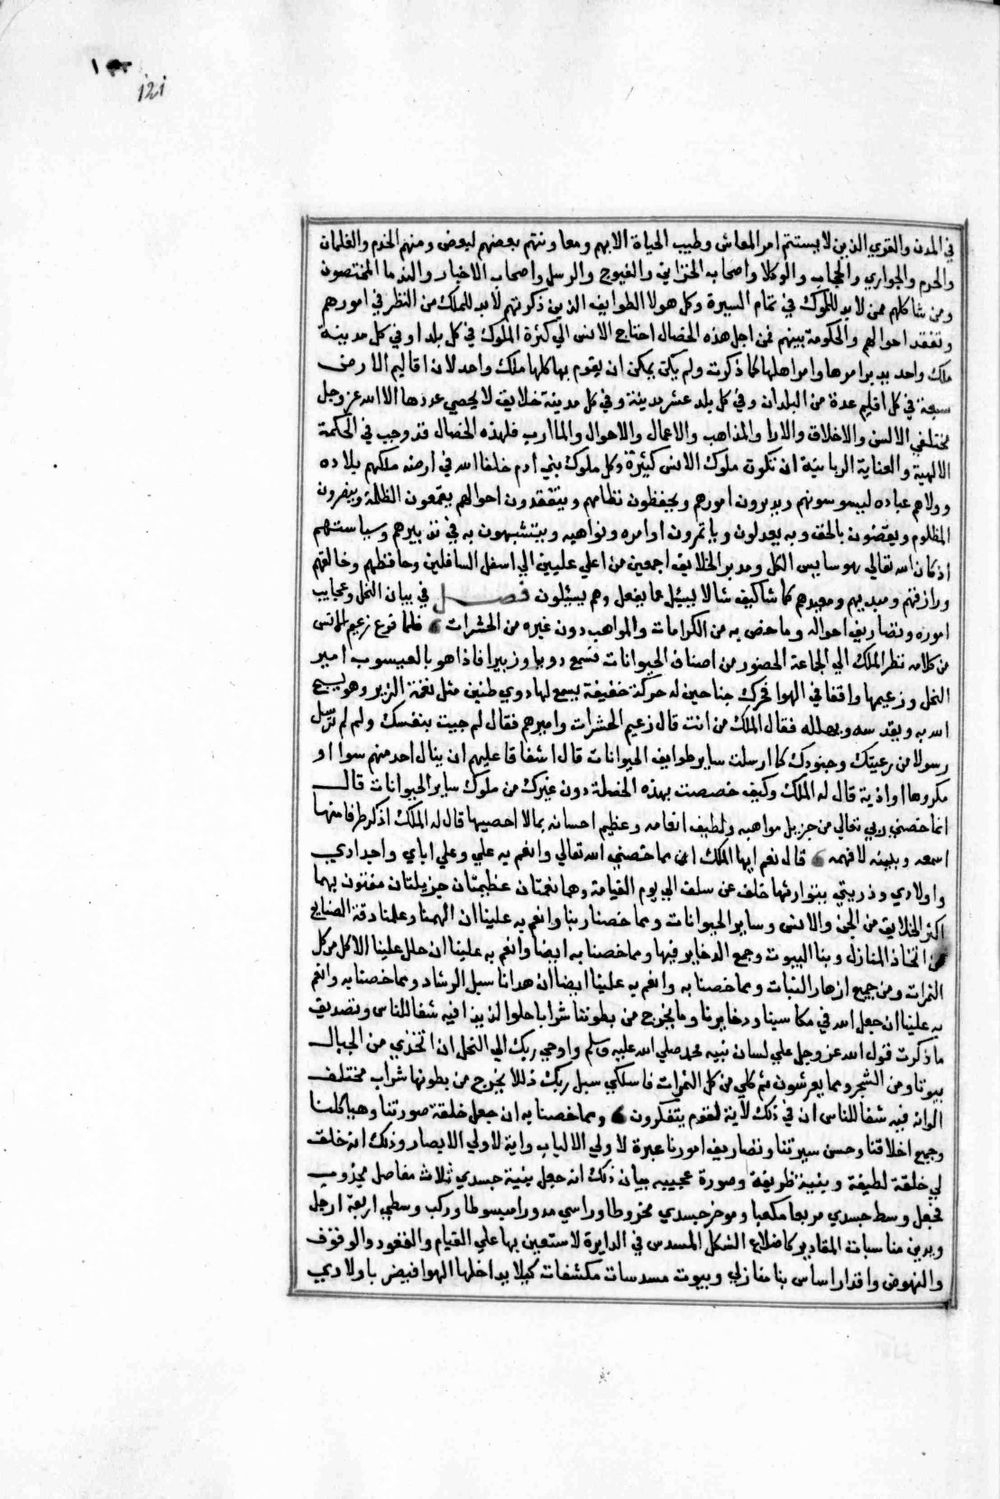 ١٢١
121
في المدن والقري الذين لا يستتم امر المعاش وطيب الحياة الا بهم ومعاونتهم بعضهم لبعض ومنهم الخدم والغلمان
والحرم والجواري والحجاب والوكلا واصحاب الخزاين والفيوج والرسل واصحاب الاخبار والندما المختصون
ومن شاكلهم ممن لابد للملوك في تمام السيرة وكل هولا الطوايف الذين ذكرتهم لابد للملك من النظر في امورهم
وتفقد احوالهم والحكومة بينهم فمن اجل هذه الخصال احتاج الانس الي كثرة الملوك في كل بلد او في كل مدينة
ملك واحد يدبر امرها وامر اهلها كما ذكرت ولم يكن يمكن ان يقوم بها كلها ملك واحد لان اقاليم الارض
سبعة في كل اقليم عدة من البلدان وفي كل بلد عشر مدينة وفي كل مدينة خلايق لا يحصي عددها الا الله عز وجل
مختلفي الالسن والاخلاق والارا والمذاهب والاعمال والاحوال والماارب فلهذه الخصال قد وجب في الحكمة
الالهية والعناية الربانية ان تكون ملوك الانس كثيرة وكل ملوك بني ادم خلفا الله في ارضه ملكهم بلاده
وولاهم عباده ليسوسونهم ويدبرون امورهم ويحفظون نظامهم ويتفقدون احوالهم يقمعون الظلمة وينصرون
المظلوم ويقضون بالحق وبه يعدلون وياتمرون اوامره ونواهيه ويتشبهون به في تدبيرهم وسياستهم
اذ كان الله تعالي هو سايس الكل ومدبر الخلايق اجمعين من اعلي عليين الي اسفل السافلين وحافظهم وخالقهم
ورازقهم ومبديهم ومعيدهم كما شا كيف شا لا يسئل عما يفعل وهم يسئلون فصل في بيان النحل وعجايب
اموره وتصاريف احواله وما خص به من الكرامات والمواهب دون غيره من الحشرات فلما فرغ زعيم الانس
من كلامه نظر الملك الي الجماعة الحضور من اصناف الحيوانات فسمع دويا وزبيرا فاذا هو باليعسوب امير
النحل وزعيمها واقفا في الهوا فحرك جناحين له حركة خفيفة يسمع لها دوي طنين مثل نغمة الزير وهو يسبح
الله به ويقدسه ويهلله فقال الملك من انت قال زعيم الحشرات واميرهم فقال لم جيت بنفسك ولم لم ترسل
رسولا من رعيتك وجنودك كما ارسلت ساير طوايف الحيوانات قال اشفاقا عليهم ان ينال احد منهم سوا او
مكروها او اذية قال له الملك وكيف خصصت بهذه الخصلة دون غيرك من ملوك ساير الحيوانات قال
انما خصني ربي تعالي من جزيل مواهبه ولطيف انعامه وعظيم احسانه بما لا احصيها قال له الملك اذكر طرفا منها
اسمعه وبينه لافهمه قال نعم ايها الملك ان مما خصني الله تعالي وانعم به علي وعلي اباي واجدادي
واولادي وذريتي يتوارثها خلف عن سلف الي يوم القيامة وهما نعمتان عظيمتان جزيلتان مغتون بهما
اكثر الخلايق من الجن والانس وساير الحيوانات ومما خصنا ربنا وانعم به علينا ان الهمنا وعلمنا دقة الصنايع
من اتخاذ المنازل وبنا البيوت وجمع الدخاير فيها ومما خصنا به ايضا وانعم به علينا ان حلل علينا الاكل من كل
الثمرات ومن جميع ازهار النبات ومما خصنا به وانعم به علينا ايضا ان هدانا سبل الرشاد ومما خصنا به وانعم
به علينا ان جعل الله في مكاسبنا ودخايرنا وما يخرج من بطوننا شرابا حلوا لذيذا فيه شفا للناس وتصديق
ما ذكرت قول الله عز وجل علي لسان نبيه محمد صلي الله عليه وسلم واوحي ربك الي النحل ان اتخذي من الجبال
بيوتا ومن الشجر ومما يعرشون ثم كلي من كل الثمرات فاسلكي سبل ربك ذللا يخرج من بطونها شراب مختلف
الوانه فيه شفا للناس ان في ذلك لاية لقوم يتفكرون ومما خصنا به ان جعل خلقة صورتنا وهياكلنا
وجميع اخلاقنا وحسن سيرتنا وتصاريف امورنا عبرة لاولي الالباب واية لاولي الابصار وذلك انه خلق
لي خلقة لطيفة وبنية ظريفة وصورة عجيبه بيان ذلك انه جعل بنية جسدي ثلاث مفاصل مجذوب
فجعل وسط جسدي مربعا مكعبا وموخر جسدي مخروطا وراسي مدورا مبسوطا وركب وسطي اربعة ارجل
ويدين مناسبات المقادير كاضلاع الشكل المسدس في الدايرة لاستعين بها علي القيام والقعود والوقوف
والنهوض واقدار اساس بنا منازلي وبيوت مسدسات مكشفات كيلا يداخلها الهوا فيضر باولادي